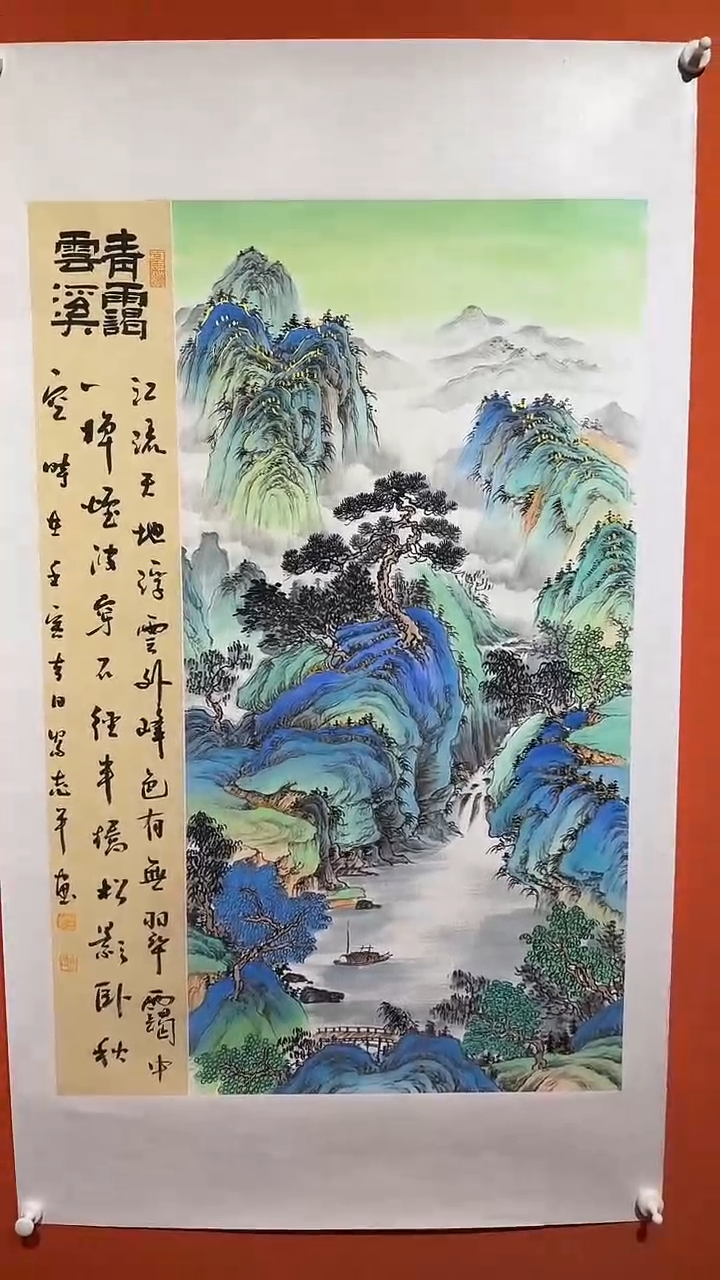 青靄
雲溪
江流天地浮雲外峰色有無翠靄中
一棹煙波穿石徑半橋松影臥秋
空時在壬寅吉日志平畫